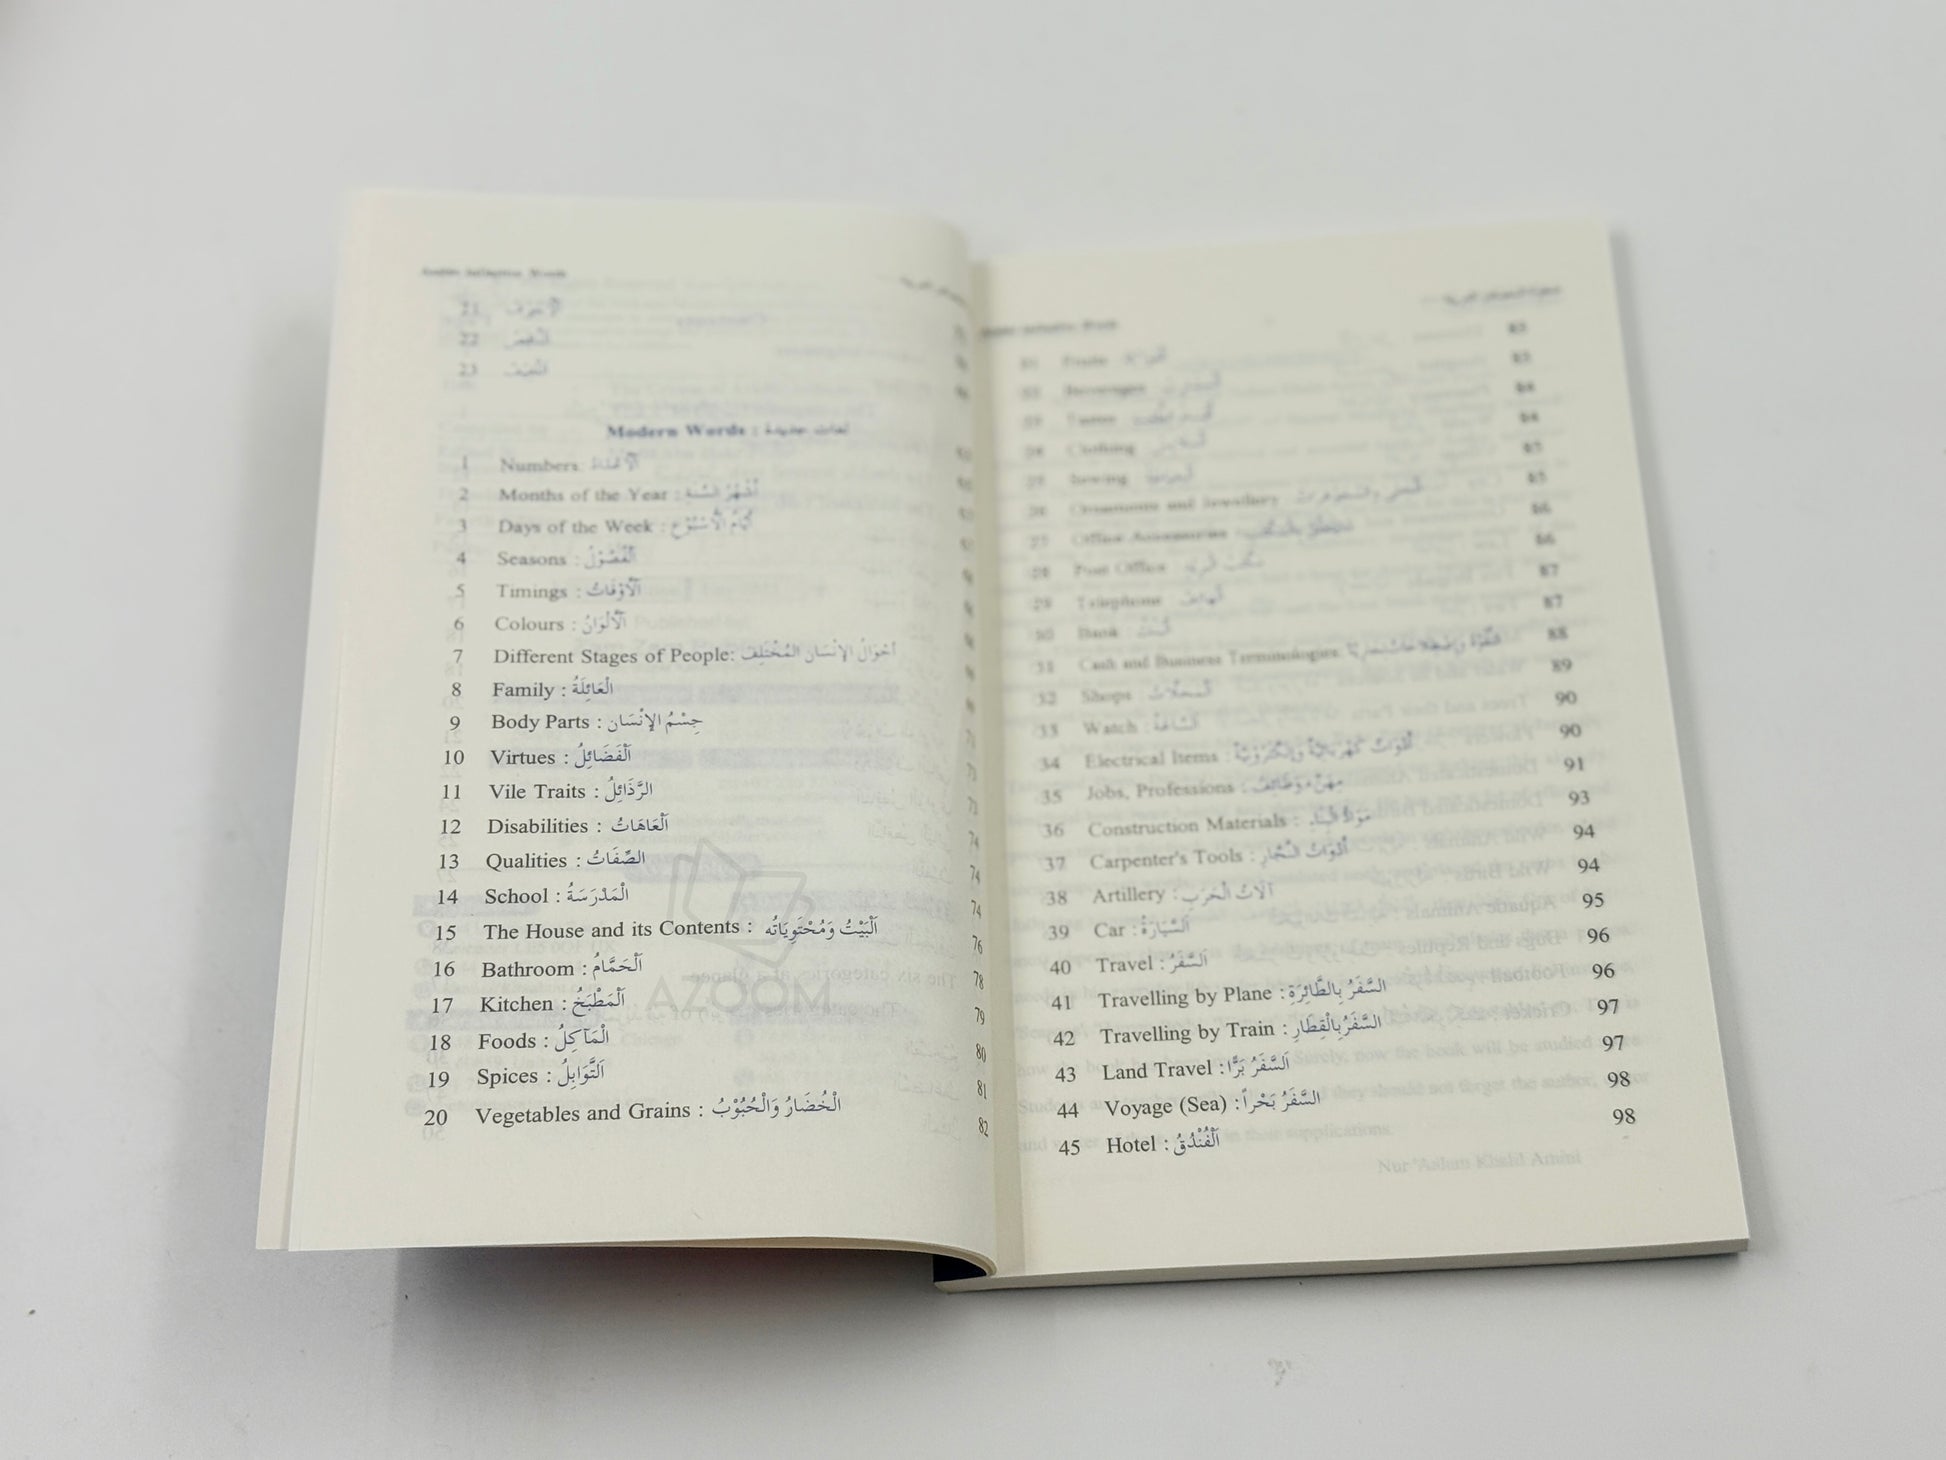 21
22
23
Modern Words : لغات جديدة
1 Numbers
2 Months of the Year : أَشْهُرُ السَّنَة
3 Days of the Week : أَيَّامُ الْأُسْبُوْعِ
4 Seasons : اَلْفُصُوْلُ
5 Timings : اَلْأَوْقَاتُ
6 Colours : اَلْأَلْوَانُ
7 Different Stages of People: أَحْوَالُ الْإِنْسَانِ الْمُخْتَلِفَ
8 Family : الْعَائِلَةُ
9 Body Parts : جِسْمُ الْإِنْسَان 71
10 Virtues : اَلْفَضَائِلُ 73
11 Vile Traits : الرَّذَائِلُ 73
12 Disabilities : اَلْعَاهَاتُ 74
13 Qualities : الصِّفَاتُ 74
14 School : الْمَدْرَسَةُ 74
15 The House and its Contents : اَلْبَيْتُ وَمُحْتَوِيَاتُه 76
16 Bathroom : اَلْحَمَّامُ 78
17 Kitchen : اَلْمَطْبَخُ 79
18 Foods : الْمَآكِلُ 80
19 Spices : اَلتَّوَابِلُ 81
20 Vegetables and Grains : الْخُضَارُ وَالْحُبُوْبُ 82
AZOOM
Fruits 83
Beverages 83
Tastes 84
Clothing 84
Sewing 85
Ornaments and Jewellery 85
Office Accessories 86
28 Post Office 86
29 Telephone : الْهَاتِفُ 87
30 Bank : الْبَنْكُ 87
31 Cash and Business Terminologies 88
32 Shops : الْمَحَلَّاتُ 89
33 Watch : السَّاعَةُ 90
34 Electrical Items : أَدَوَاتٌ كَهْرَبَائِيَّةٌ وَإِلِكْتْرُوْنِيَّةٌ 90
35 Jobs, Professions : مِهَنٌ وَوَظَائِفُ 91
36 Construction Materials : مَوَادُّ الْبِنَاءِ 93
37 Carpenter's Tools : أَدَوَاتُ النَّجَّارِ 94
38 Artillery : آلَاتُ الْحَرَبِ 94
39 Car : اَلسَّيَارَةُ 95
40 Travel : اَلسَّفَرُ 96
41 Travelling by Plane : السَّفَرُ بِالطَّائِرَةِ 96
42 Travelling by Train : السَّفَرُ بِالْقِطَارِ 97
43 Land Travel : اَلسَّفَرُ بَرًّا 97
44 Voyage (Sea) : السَّفَرُ بَحْراً 98
45 Hotel : اَلْفُنْدُقُ 98